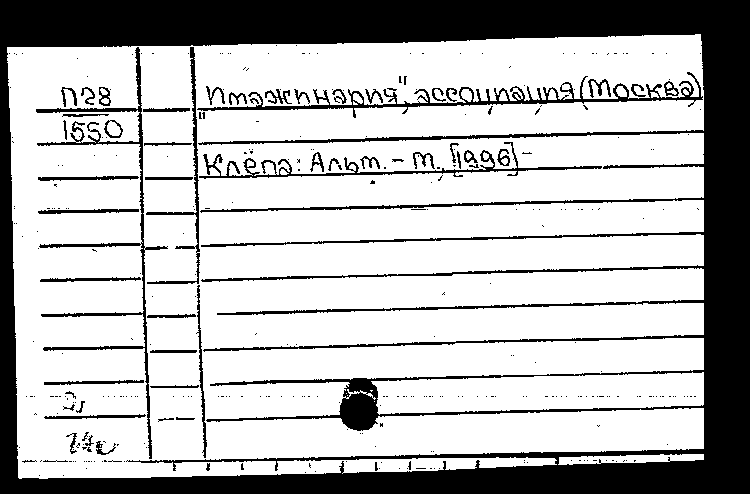 П28 "Имажинария", ассоциация (Москва)
1550
Клёпа: Альм. - М., [1996] -